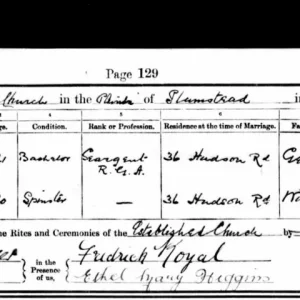 Page 129
Church in the Parish of Plumstead in
Condition. Rank or Profession. Residence at the time of Marriage.
Bachelor Seargent R.G.A. 36 Hudson Rd
Spinster 36 Hudson Rd
the Rites and Ceremonies of the Established Church by
in the Presence of us, Fredrick Noyal
Ethel Mary Huggins